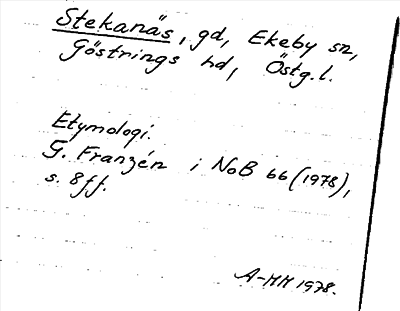 Stekanäs, gd, Ekeby sn,
Göstrings hd, Östg.l.
Etymologi.
G. Franzén i NoB 66 (1978),
s. 8 ff.
A-HH 1978.